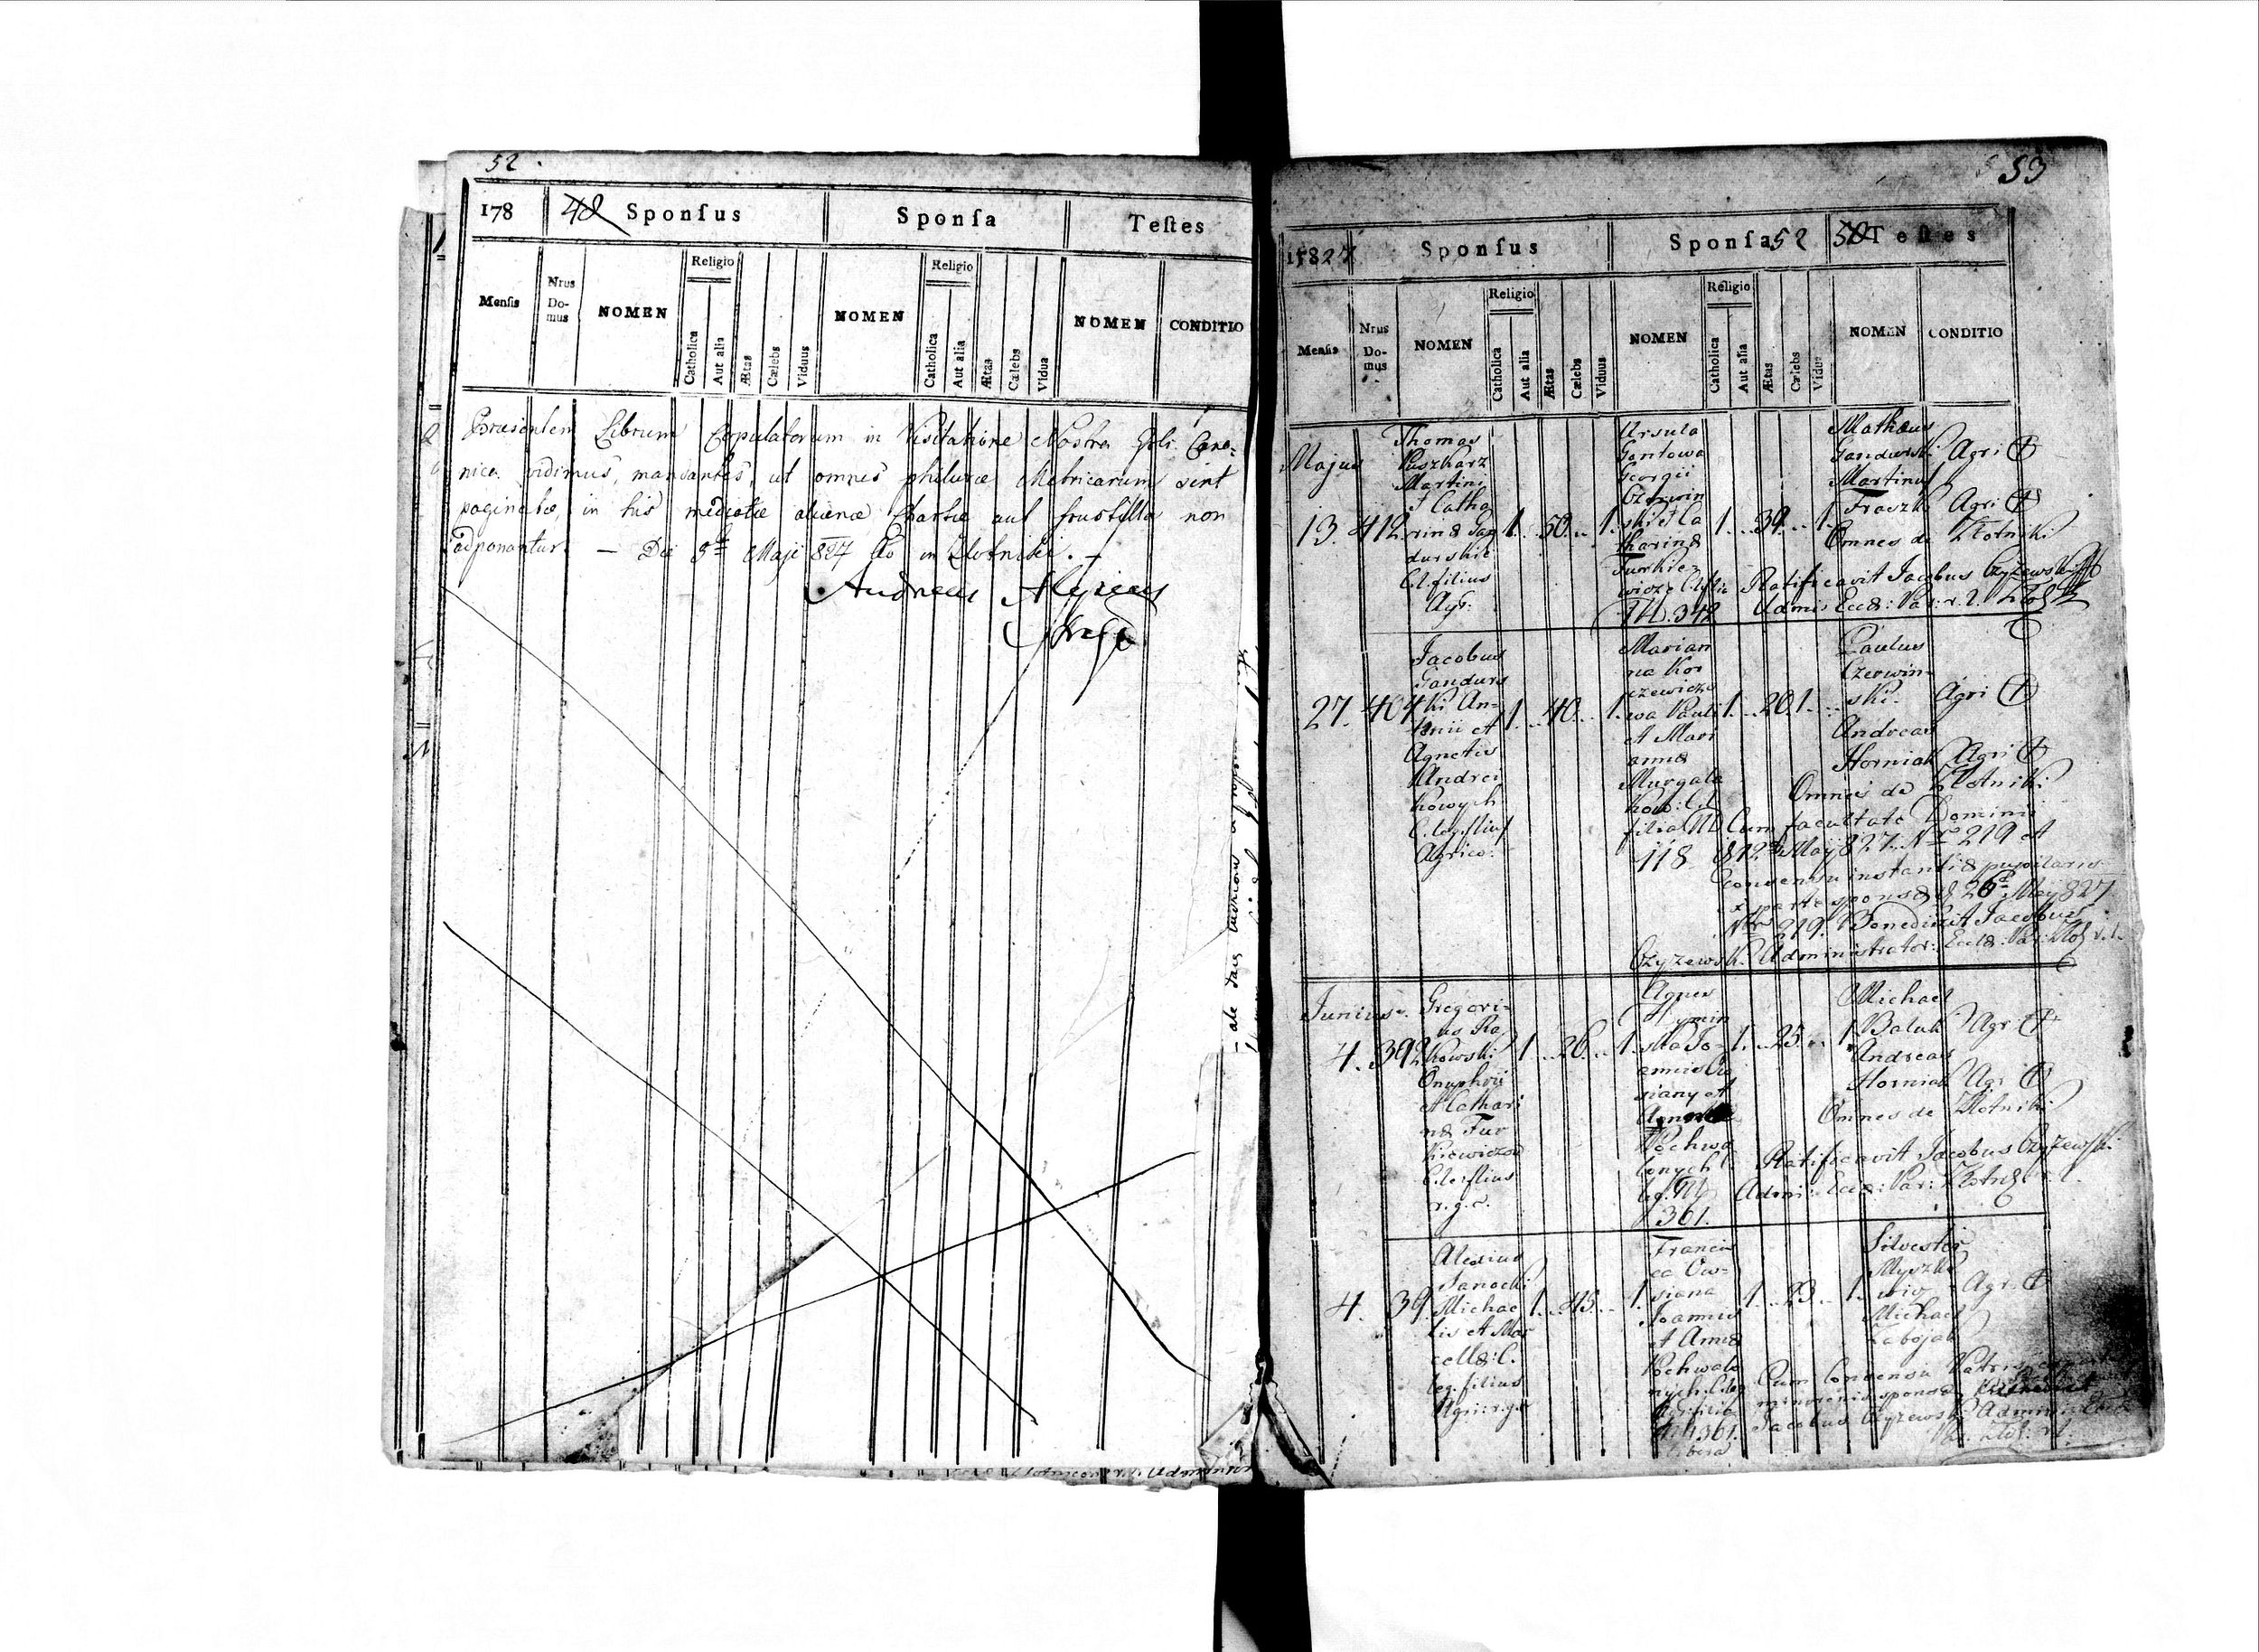 52.
178
48 Sponſus
Sponſa
Teſtes
Menſis
Nrus Domus
NOMEN
Religio
Catholica
Aut alia
Ætas
Cælebs
Viduus
NOMEN
Religio
Catholica
Aut alia
Ætas
Cælebs
Vidua
NOMEN
CONDITIO
Præsentem Librum Copulatorum in Visitatione Nostra Gnli Cano=
nica vidimus, mandantes, ut omnes philuræ Metricarum sint
paginatæ, in his medietæ alienæ Chartæ aut frustilla non
adponantur. — Die Maji 827 in Złotniki. —
Andreas
53
1827
Sponſus
Sponſa 52
50 Teſtes
Menſis
Nrus Domus
NOMEN
Religio
Catholica
Aut alia
Ætas
Cælebs
Viduus
NOMEN
Religio
Catholica
Aut alia
Ætas
Cælebs
Vidua
NOMEN
CONDITIO
Majus
13. 412
Thomas
Puszkarz
Martini
et Catha
rinæ Gan
durskie
C. l. filius
Agr:
1. 50. 1.
Ursula
Gantowa
Georgii
Czerwin
ski et Ca
tharinæ
Turkie
wicze
N. 342
1. 39. 1.
Mathæus
Gandurski Agri
Martinus
Fraszk Agri
Omnes de Złotniki
Ratificavit Jacobus Czyżewski
Admi: Eccl: Par: r. l. Złot:
27. 404
Jacobus
Gandurs
ki An-
tonii et
Agnetis
Andrei
kowych
C. leg. filius
Agrico:
1. 40. 1.
Marian
na Kor
czewicz
wa Pauli
et Mari
annæ
Murgala
kow: C. l.
filia N
118
1. 20. 1.
Paulus
Czerwin-
ski. Agri
Andreas
Horniak Agri
Omnes de Złotniki
Cum facultate Dominii
12 Maji 827 Nro 219 et
Consensu instantiæ pupilaris
ex parte sponsæ 26 May 827
Nro 219. Benedixit Jacobus
Czyzewski Administrator: Eccl: Par: Złot r. l.
Junius.
4. 392
Gregori-
us Ra
kowski
Onuphrii
et Cathari
næ Tur
kiewiczow
C. le. filius
r. g. c.
1. 26. 1.
Agnes
Tymin
ska Jo-
annis
siany et
Agnetis
Pochwa
lonych
leg. N
361.
1. 25. 1.
Michael
Baluk Agr
Andreas
Horniak Agr
Omnes de Złotniki
Ratificavit Jacobus Czyżewski
Admi: Eccl: Par: Złotn: r. l.
4. 39.
Alexius
Sanocki
Michae
lis et Mar
cellæ: C.
leg. filius
Agri: r. g. c.
1. 45. 1.
Francis
ca Ow-
siana
Joannis
et Annæ
Pochwalo
nych C. leg
filia
N 361.
libera
1. 23. 1.
Silvester
Myszko
wio Agr
Michael
Zabojak
Cum Consensu Patris
minorenis sponsæ
Jacobus Czyżewski Admini:
Par. Złot: r. l.